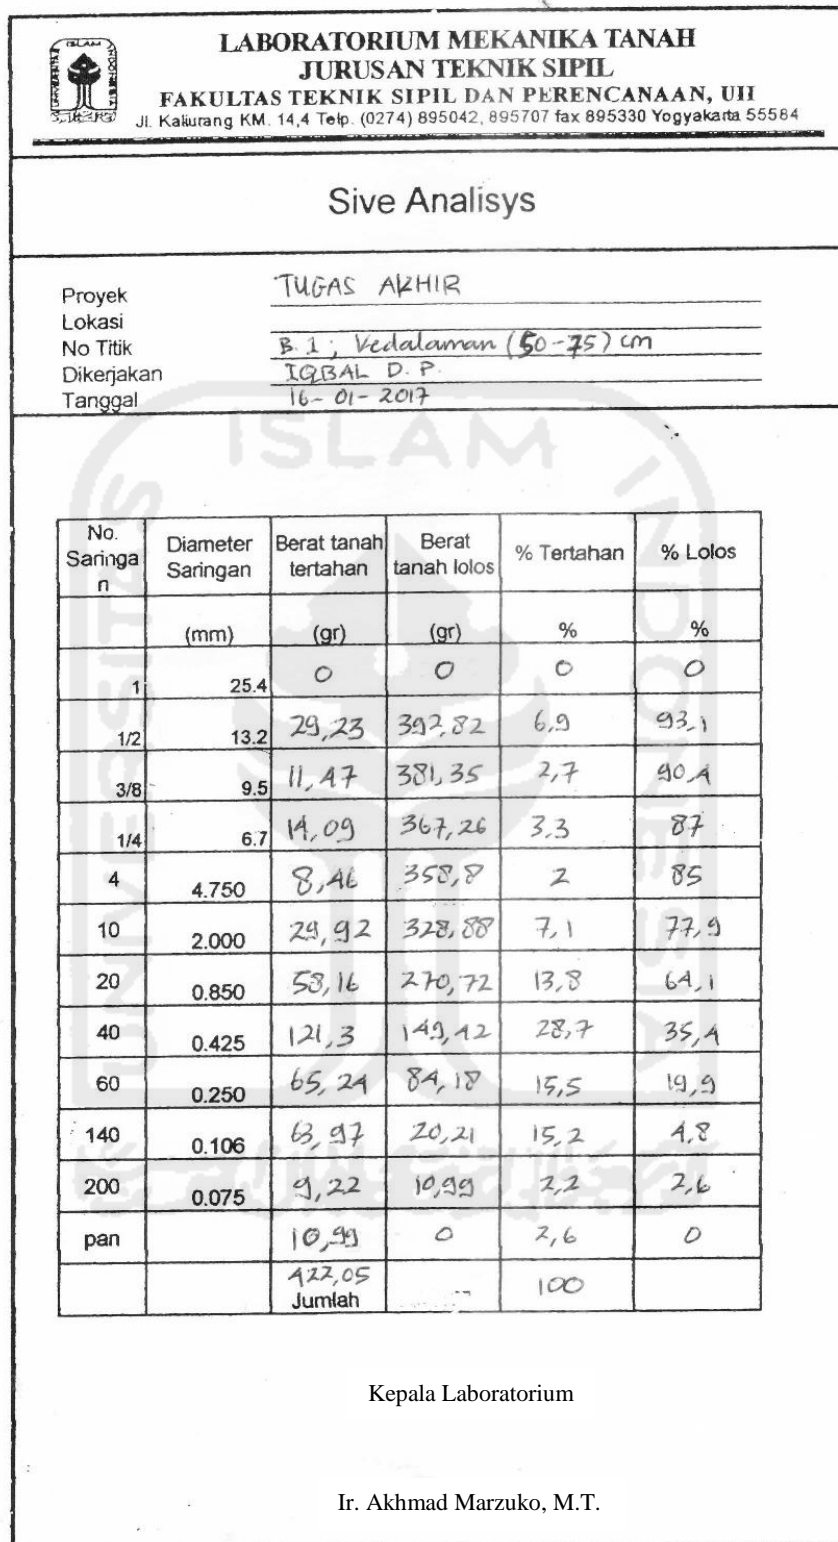 LABORATORIUM MEKANIKA TANAH
JURUSAN TEKNIK SIPIL
FAKULTAS TEKNIK SIPIL DAN PERENCANAAN, UII
Jl. Kaliurang KM. 14,4 Telp. (0274) 895042, 895707 fax 895330 Yogyakarta 55584
Sive Analisys
Proyek TUGAS AKHIR
Lokasi
No Titik B. 1 ; Kedalaman (50-75) cm
Dikerjakan IQBAL D. P.
Tanggal 16-01-2017
ISLAM
UNIVERSITAS
INDONESIA
No. Saringan Diameter Saringan Berat tanah tertahan Berat tanah lolos % Tertahan % Lolos
(mm) (gr) (gr) % %
1 25.4 0 0 0 0
1/2 13.2 29,23 392,82 6,9 93,1
3/8 9.5 11,47 381,35 2,7 90,4
1/4 6.7 14,09 367,26 3.3 87
4 4.750 8,46 358,8 2 85
10 2.000 29,92 328,88 7,1 77,9
20 0.850 58,16 270,72 13,8 64,1
40 0.425 121,3 149,42 28,7 35,4
60 0.250 65,24 84,18 15,5 19,9
140 0.106 63,97 20,21 15,2 4,8
200 0.075 9,22 10,99 2,2 2,6
pan 10,99 0 2,6 0
422,05 100
Jumlah
Kepala Laboratorium
Ir. Akhmad Marzuko, M.T.